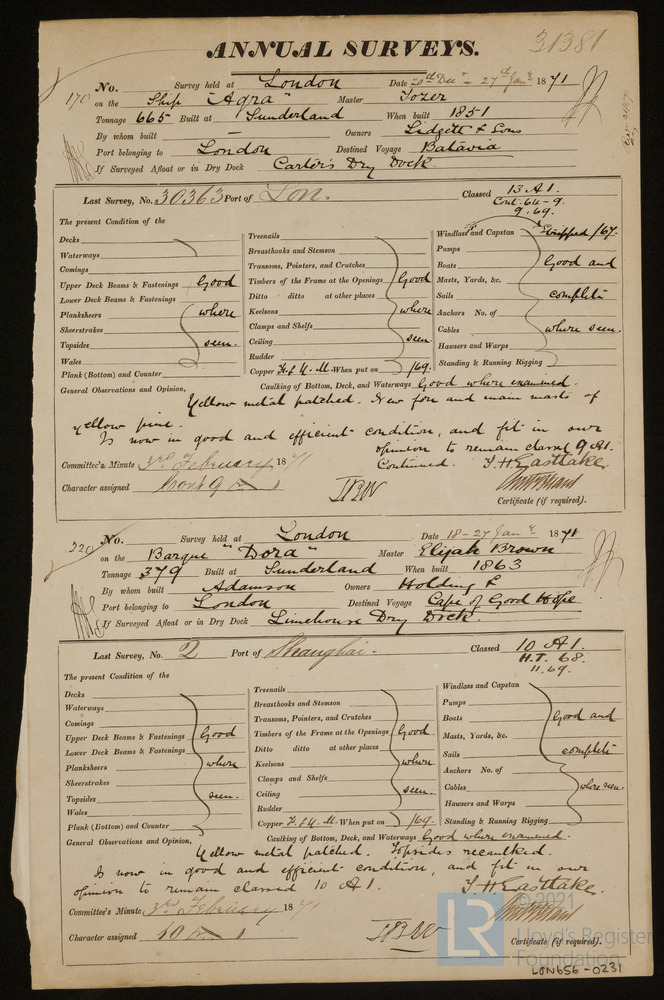 ANNUAL SURVEYS.
31381
170
No. Survey held at London Date 20th Decr - 27th Jany 1871
on the Ship "Agra" Master Tozer
Tonnage 665 Built at Sunderland When built 1851
By whom built — Owners Lidgett & Sons
Port belonging to London Destined Voyage Batavia
If Surveyed Afloat or in Dry Dock Carter's Dry Dock.
Last Survey, No. 30363 Port of Lon. Classed 13 A 1.
Cont. 64-9.
9.69.
The present Condition of the
Decks
Waterways
Comings
Upper Deck Beams & Fastenings Good
Lower Deck Beams & Fastenings
Planksheers where
Sheerstrakes
Topsides seen.
Wales
Plank (Bottom) and Counter
Treenails
Breasthooks and Stemson
Transoms, Pointers, and Crutches
Timbers of the Frame at the Openings Good
Ditto ditto at other places
Keelsons where
Clamps and Shelfs
Ceiling seen
Rudder
Copper F. & Y. M. When put on /69.
Windlass and Capstan Stripped /67.
Pumps
Boats Good and
Masts, Yards, &c.
Sails complete
Anchors No. of
Cables where seen.
Hawsers and Warps
Standing & Running Rigging
General Observations and Opinion, Caulking of Bottom, Deck, and Waterways Good where examined.
Yellow metal patched. New fore and main masts of
yellow pine.
Is now in good and efficient condition, and fit in our
opinion to remain classed 9 A1.
Continued. J. H. Eastlake
Committee's Minute 3rd February 1871
Character assigned Cont 9 A 1
JBW
Certificate (if required).
220
No. Survey held at London Date 18-27 Jany 1871
on the Barque "Dora" Master Elijah Brown
Tonnage 379 Built at Sunderland When built 1863
By whom built Adamson Owners Holding &
Port belonging to London Destined Voyage Cape of Good Hope
If Surveyed Afloat or in Dry Dock Limehouse Dry Dock.
Last Survey, No. 2 Port of Shanghai. Classed 10 A 1.
H.T. 68.
11.69.
The present Condition of the
Decks
Waterways
Comings
Upper Deck Beams & Fastenings Good
Lower Deck Beams & Fastenings
Planksheers where
Sheerstrakes
Topsides seen.
Wales
Plank (Bottom) and Counter
Treenails
Breasthooks and Stemson
Transoms, Pointers, and Crutches
Timbers of the Frame at the Openings Good
Ditto ditto at other places
Keelsons where
Clamps and Shelfs
Ceiling seen.
Rudder
Copper F. & Y. M. When put on /69.
Windlass and Capstan
Pumps
Boats Good and
Masts, Yards, &c.
Sails complete
Anchors No. of
Cables where seen.
Hawsers and Warps
Standing & Running Rigging
General Observations and Opinion, Caulking of Bottom, Deck, and Waterways Good where examined.
Yellow metal patched. Topsides recaulked.
Is now in good and efficient condition, and fit in our
opinion to remain classed 10 A 1.
J. H. Eastlake.
Committee's Minute 3rd February 1871
Character assigned 10 A 1
JBW
Certificate (if required).
LR
© 2021
Lloyd's Register
Foundation
LON656-0231